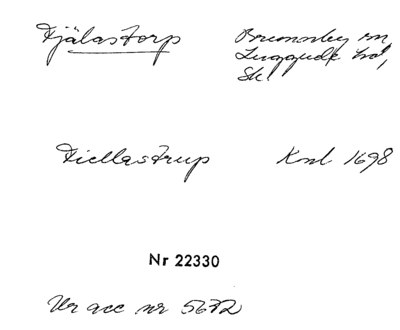 Fjälastorp Brunnby sn,
Luggude hd,
Sk.
Fiellastrup Knl 1698
Nr 22330
Ur acc nr 5672